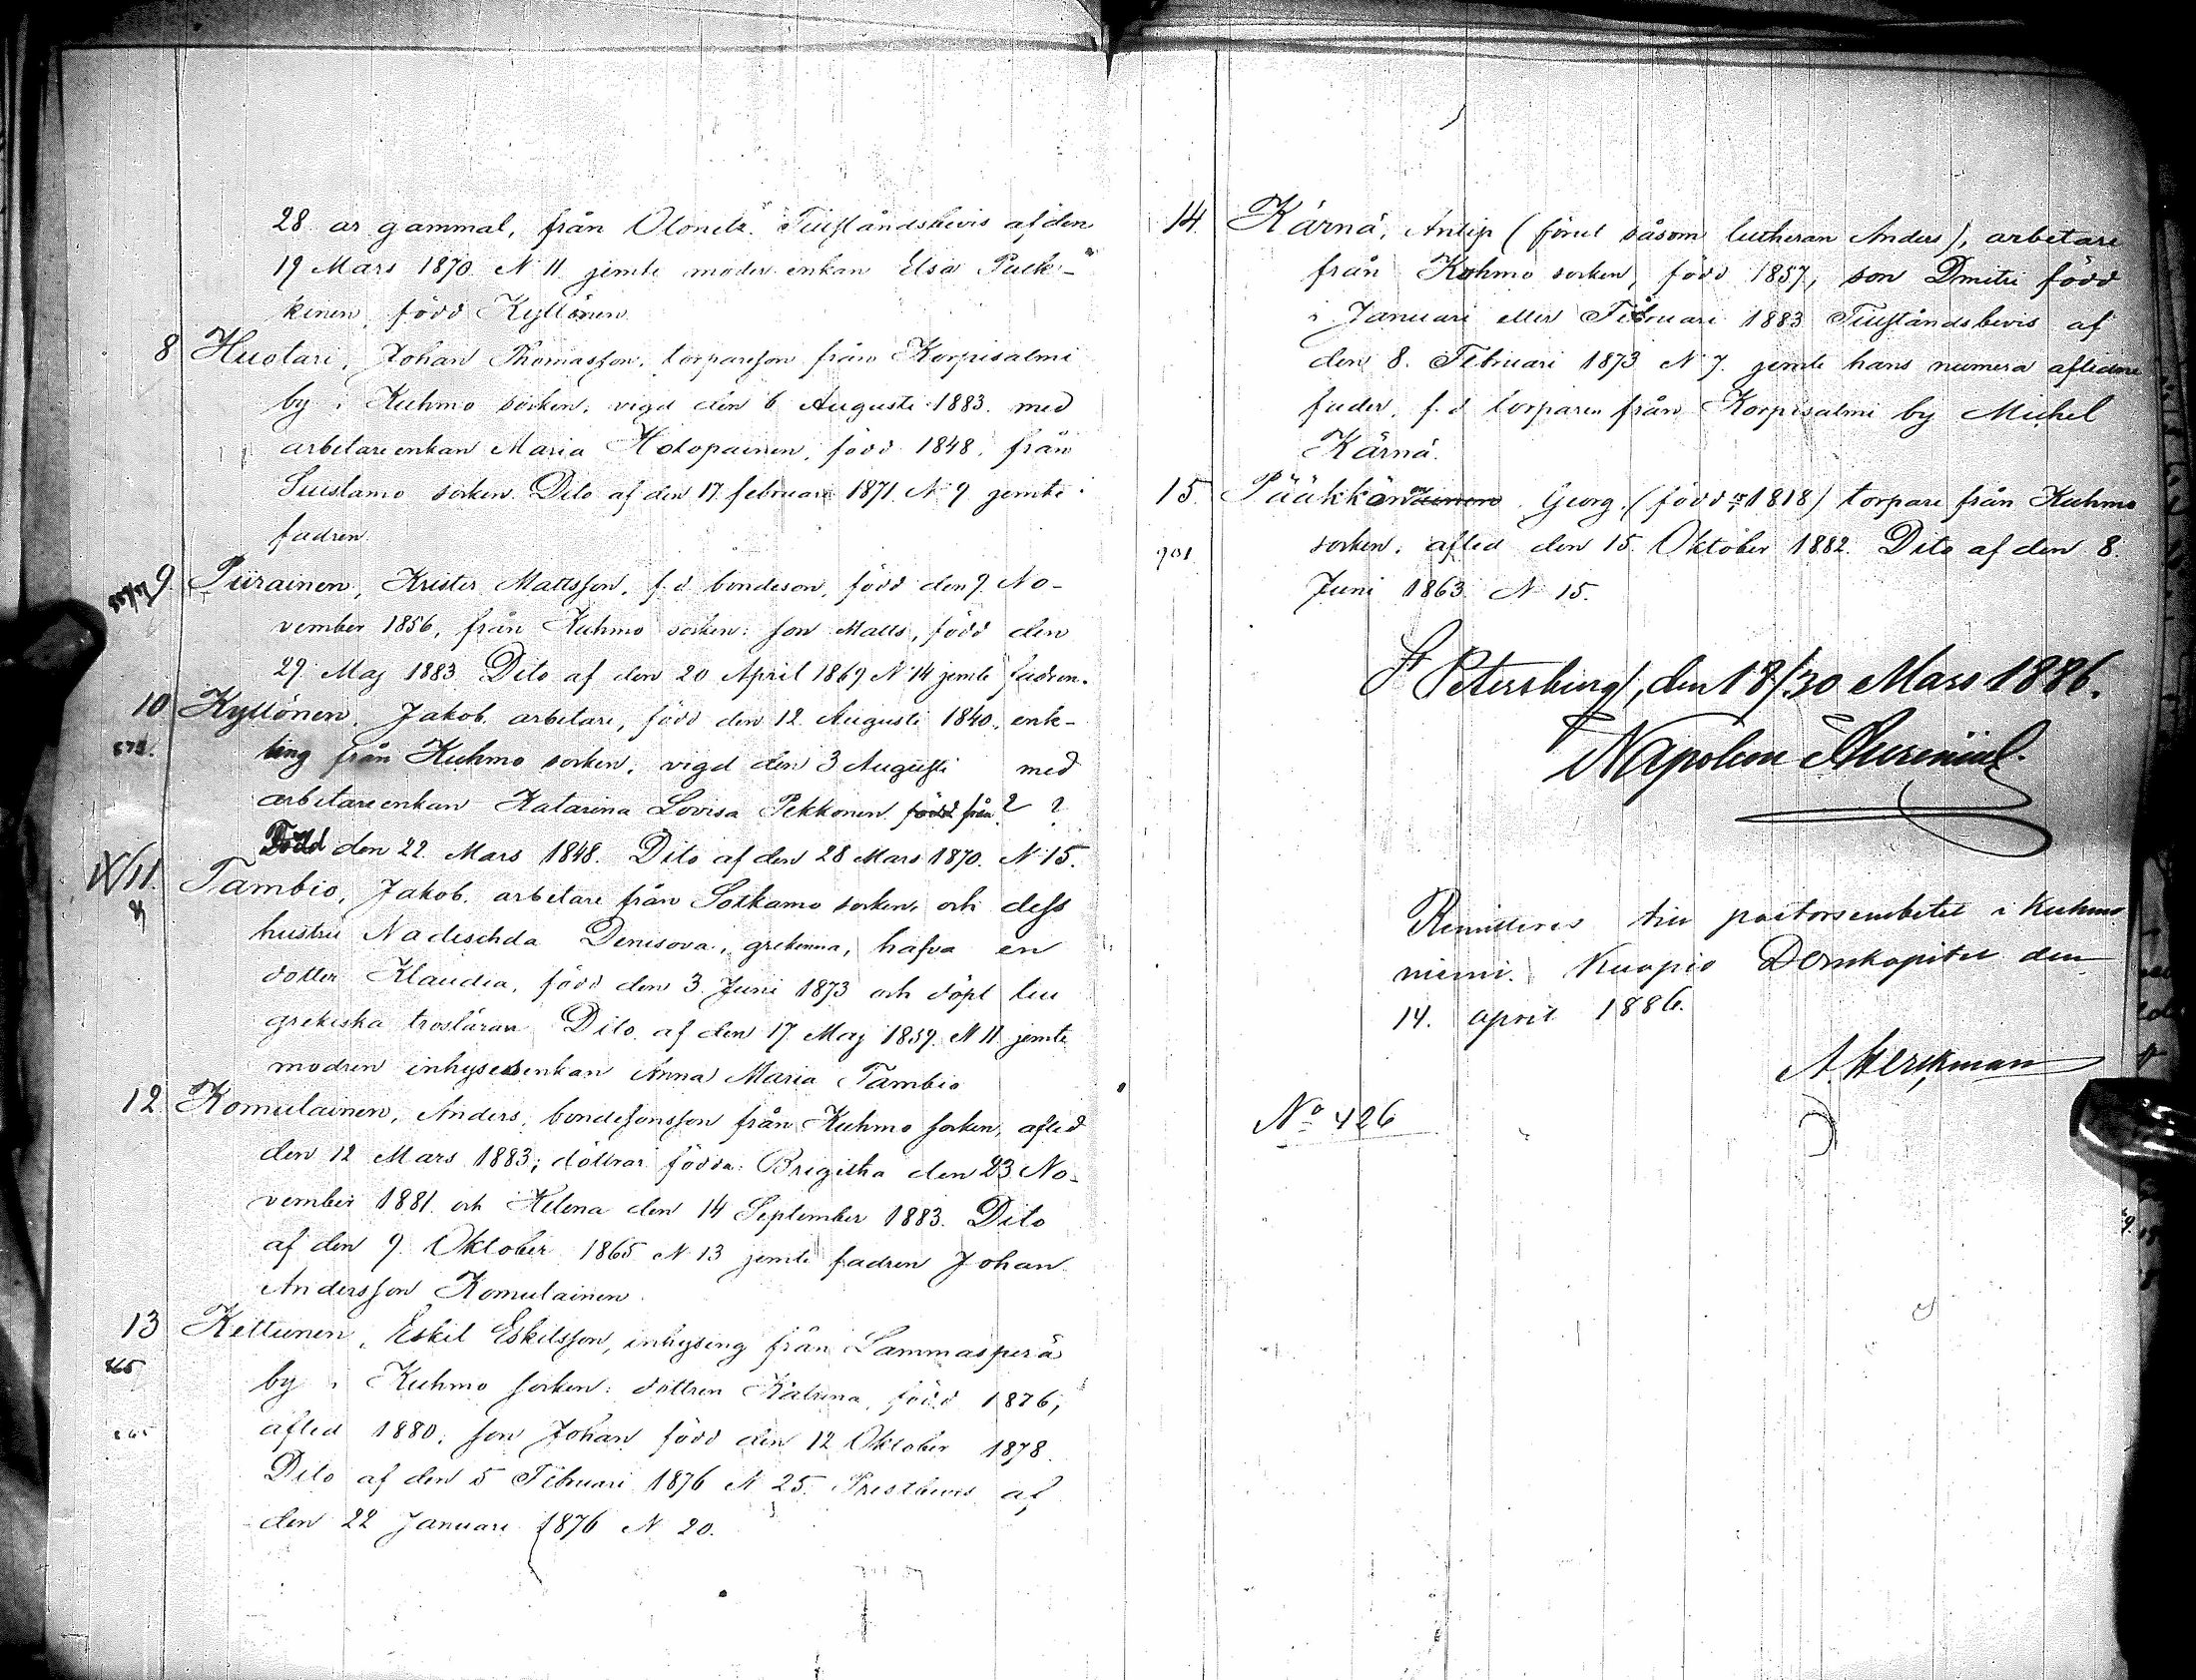 28 år gammal, från Olonetz. Tillståndsbevis af den
19 Mars 1870 N 11 jemte moder enkan Elsa Puck-
kinen, född Kyllönen.
8 Huotari, Johan Thomasson, torpareson från Korpisalmi
by i Kuhmo socken, vigd den 6 Augusti 1883 med
arbetareenkan Maria Holopainen, född 1848, från
Suistamo socken. Dito af den 17 februari 1871 N 9 jemte
fadren.
9. Piirainen, Krister Mattsson, f.d. bondeson, född den 9. No-
vember 1856, från Kuhmo socken: son Matts, född den
29 Maj 1883. Dito af den 20 April 1869 N 14 jemte fadren.
10 Kyllönen, Jakob, arbetare, född den 12 Augusti 1840, enk-
ling från Kuhmo socken, vigd den 3 Augusti med
arbetareenkan Katarina Lovisa Pekkonen född från ? ?
Född den 22 Mars 1848. Dito af den 28 Mars 1870. N 15.
11. Tambio, Jakob, arbetare från Sotkamo socken och dess
hustru Nadeschda Denisova, grekinna, hafva en
dotter Klaudia, född den 3 Juni 1873 och döpt till
grekiska trosläran. Dito af den 17 Maj 1859 N 11 jemte
modren inhysesenkan Anna Maria Tambio
12 Komulainen, Anders, bondesonsson från Kuhmo socken, afled
den 12 Mars 1883; döttrar födda: Brigitha den 23 No-
vember 1881 och Helena den 14 September 1883. Dito
af den 9 Oktober 1865 N 13 jemte fadren Johan
Andersson Komulainen.
13 Kettunen, Eskil Eskilsson, inhysing från Lammasperä
865
by i Kuhmo socken: dottren Katrina, född 1876,
afled 1880, son Johan född den 12 Oktober 1878.
Dito af den 5 Februari 1876 N 25. Prestbevis af
den 22 Januari 1876 N 20.
14. Kärnä, Antip (förut såsom lutheran Anders), arbetare
från Kuhmo socken, född 1857, son Dmitri född
i Januari eller Februari 1883 Tillståndsbevis af
den 8. Februari 1873 N 7. jemte hans numera aflidne
fader, f.d torparen från Korpisalmi by Michel
Kärnä.
15. Pääkkönen Georg. (född 1818) torpare från Kuhmo
901
socken, afled den 15. Oktober 1882. Dito af den 8.
Juni 1863 N 15.
St Petersburg, den 18/30 Mars 1886.
Napoleon
Remitteras till pastorsembetet i Kuhmo
niemi. Kuopio Domkapitel den
14. april 1886.
No 426